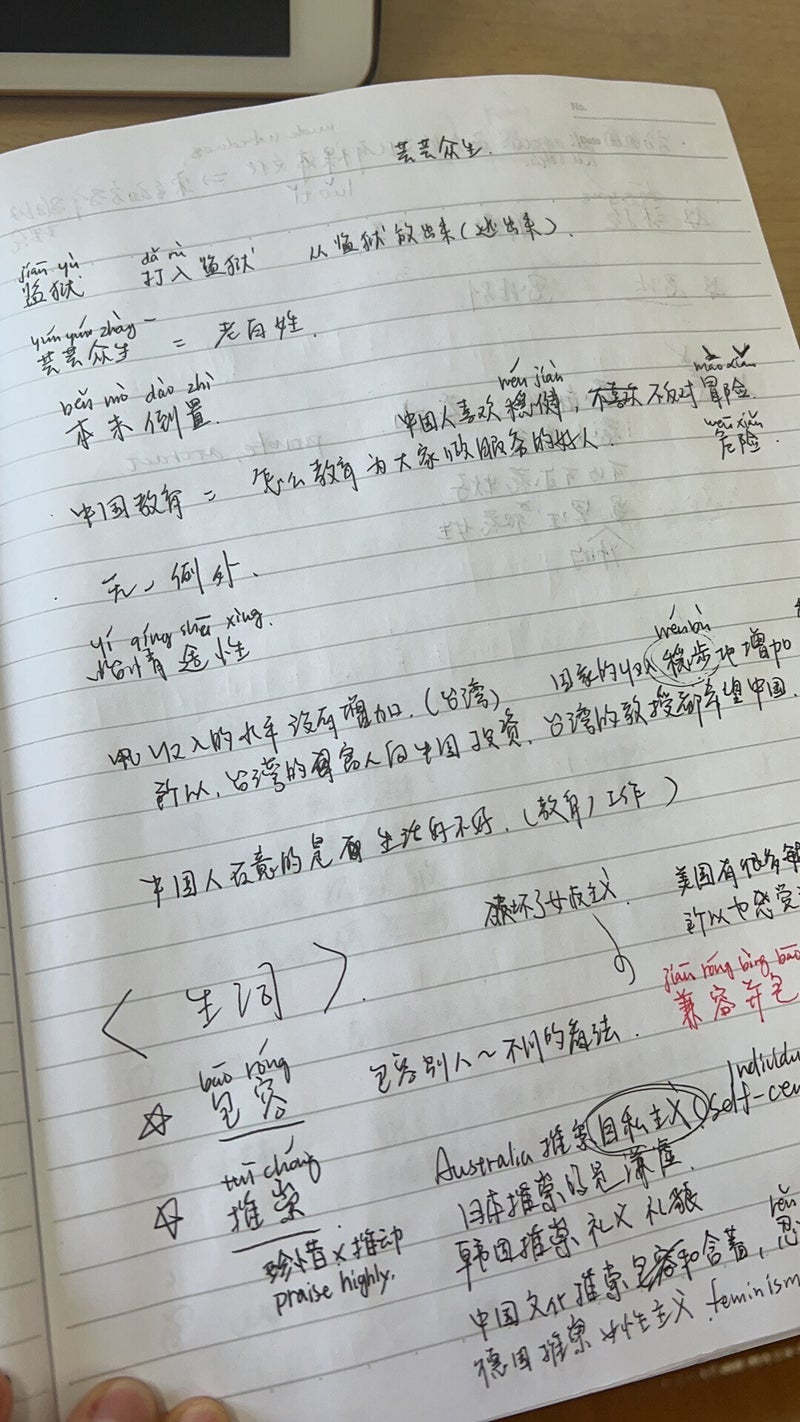 No.
芸芸众生.
jiān yù dǎ rù
监狱 打入监狱 从监狱放出来(逃出来).
yún yún zhòng
芸芸众生 = 老百姓.
běn mò dào zhì
本末倒置.
wěn jiàn mào xiǎn
中国人喜欢稳健, 不反对冒险.
wēi xiǎn
危险.
中国教育 = 怎么教育为大家做服务的好人.
无一例外.
yí qíng shě xìng.
怡情 性
wěn bù
收入的水平没有增加.(台湾) 国家的收入稳步地增加
所以, 台湾的富人向中国投资, 台湾的教授都希望中国.
中国人在意的是 生活好不好.(教育, 工作)
破坏了女权主义. 美国有很多
所以也感受
<生词>.
jiān róng bìng bāo
兼容并包
bāo róng
☆ 包容 包容别人~不同的看法.
Individu
tuī chóng
☆ 推崇 Australia 推崇自私主义(self-cen
珍惜 × 推动
praise highly.
日本推崇的是谦虚.
韩国推崇礼义 礼貌
rěn
中国文化推崇包容和含蓄, 忍
德国推崇女性主义. feminism